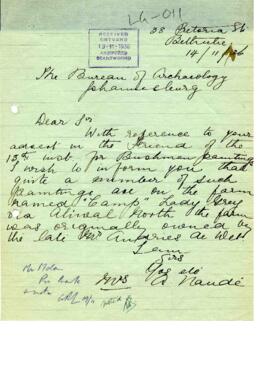 LG-011
RECEIVED
ONTVANG
ANSWERED
BEANTWOORD
38 Pretoria St
14/11/36
The Bureau of Archaeology
Johannesburg
Dear Sir
With reference to your
advert in the Friend of the
13th inst for Bushmen paintings
I wish to inform you that
quite a number of such
paintings are on the farm
named "Camp" Lady Grey
via Aliwal North the farm
was originally owned by
the late Mr Andries de Wet
I am
Sirs
A Naudé